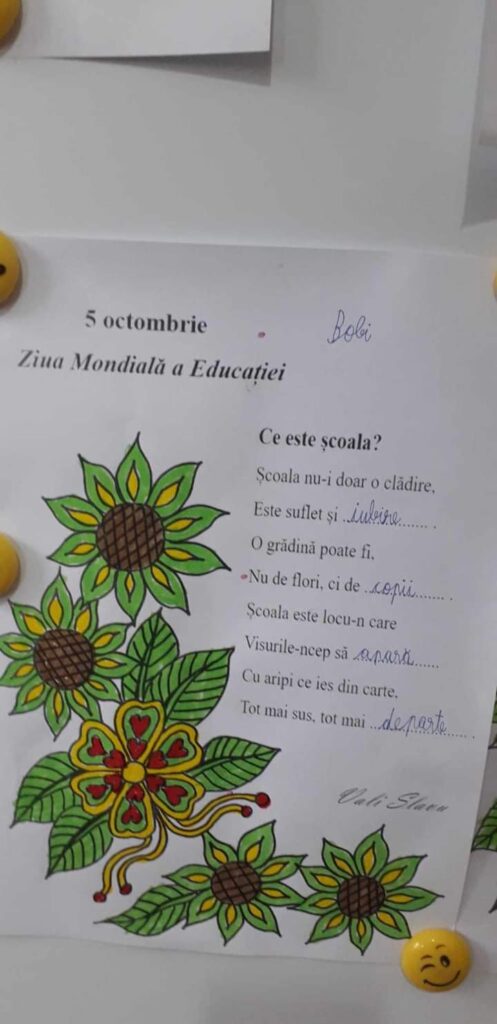 5 octombrie
Bobi
Ziua Mondială a Educației
Ce este școala?
Școala nu-i doar o clădire,
Este suflet și ..iubire....... .
O grădină poate fi,
Nu de flori, ci de ..copii....... .
Școala este locu-n care
Visurile-ncep să ..apară......
Cu aripi ce ies din carte,
Tot mai sus, tot mai ...departe..... .
Vali Slavu